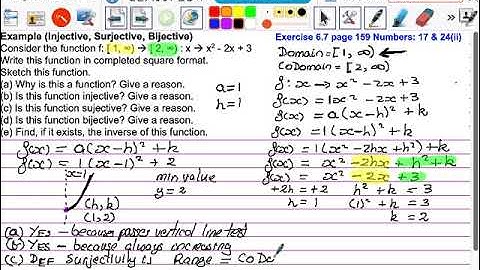 Example (Injective, Surjective, Bijective)
Consider the function f: [ 1, ∞) → [ 2, ∞) : x → x² - 2x + 3
Write this function in completed square format.
Sketch this function.
(a) Why is this a function? Give a reason.
(b) Is this function injective? Give a reason.
(c) Is this function sujective? Give a reason.
(d) Is this function bijective? Give a reason.
(e) Find, if it exists, the inverse of this function.
a = 1
h = 1
f(x) = a(x-h)² + k
f(x) = 1(x-1)² + 2
x=1
min value
y = 2
(h,k)
(1,2)
Exercise 6.7 page 159 Numbers: 17 & 24(ii)
Domain = [1, ∞)
CoDomain = [2, ∞)
f: x → x² - 2x + 3
f(x) = 1x² - 2x + 3
f(x) = a(x-h)² + k
f(x) = 1(x² - 2hx + h²) + k
f(x) = x² - 2hx + h² + k
f(x) = x² - 2x + 3
+2h = +2 h² + k = 3
h = 1 (1)² + k = 3
k = 2
(a) YES - because passes vertical line test
(b) YES - because always increasing
(c) DEF Surjectivity is Range = CoDo